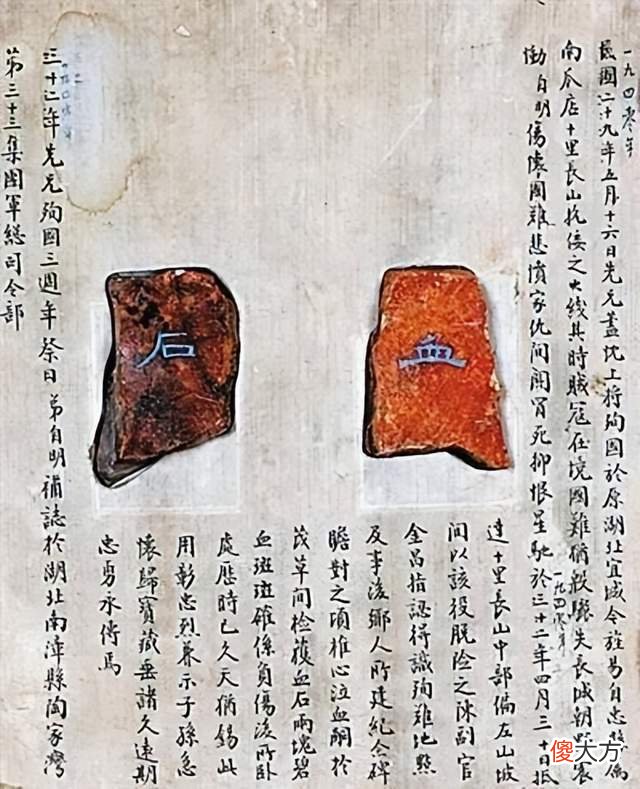 一九四零年
民國二十九年五月十六日先兄藎忱上將殉國於原湖北宜城今旌易自忠縣屬
南瓜店十里長山抗倭之火线其時賊寇在境國難猶殷驟失長城朝野震
慟自明傷懷國難悲憤家仇间關冒死抑恨星馳於三十二年四月三十日抵
達十里長山中部偏左山坡
间以該役脱险之陳副官
全昌指認得識殉難地點
及事後鄉人所建紀念碑
瞻對之頃椎心泣血嗣於
茂草间檢獲血石兩塊碧
血斑斑確係負傷後所卧
處歷時已久天猶錫此
用彰忠烈兼示子孫急
懷歸寶藏垂諸久遠期
忠勇永傳焉
血
石
三十二年先兄殉國三週年祭日弟自明補誌於湖北南漳縣陶家灣
第三十三集團軍總司令部
傻大方